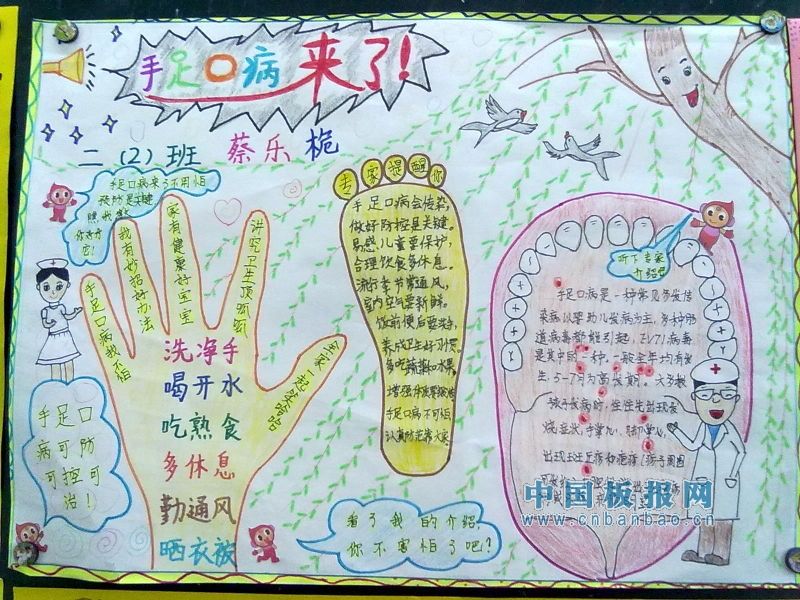 手足口病来了!
二(2)班 蔡乐桅
手足口病来了不用怕
预防是关键
手足口病我不怕
我有妙招好办法
家有健康好宝宝
讲究卫生顶呱呱
全家一起笑哈哈
洗净手
喝开水
吃熟食
多休息
勤通风
晒衣被
手足口
病可防
可控可
治!
专家提醒你
手足口病会传染,
做好防控是关键。
易感儿童要保护,
合理饮食多休息。
流行季节常通风,
室内空气要新鲜。
饭前便后要洗手,
养成卫生好习惯。
多吃蔬菜和水果,
增强体质
手足口病不可怕
认真防范
看了我的介绍,
你不害怕了吧?
听下专家
介绍吧
手足口病是一种常见多发传
染病,以婴幼儿发病为主,多种肠
道病毒都能引起,EV71病毒
是其中的一种。一般全年均有发
生,5-7月为高发期。大多数
孩子发病时,往往先出现发
烧症状,手掌心、脚掌心
出现斑丘疹和疱疹(疹子周围
中国板报网
www.cnbanbao.cn